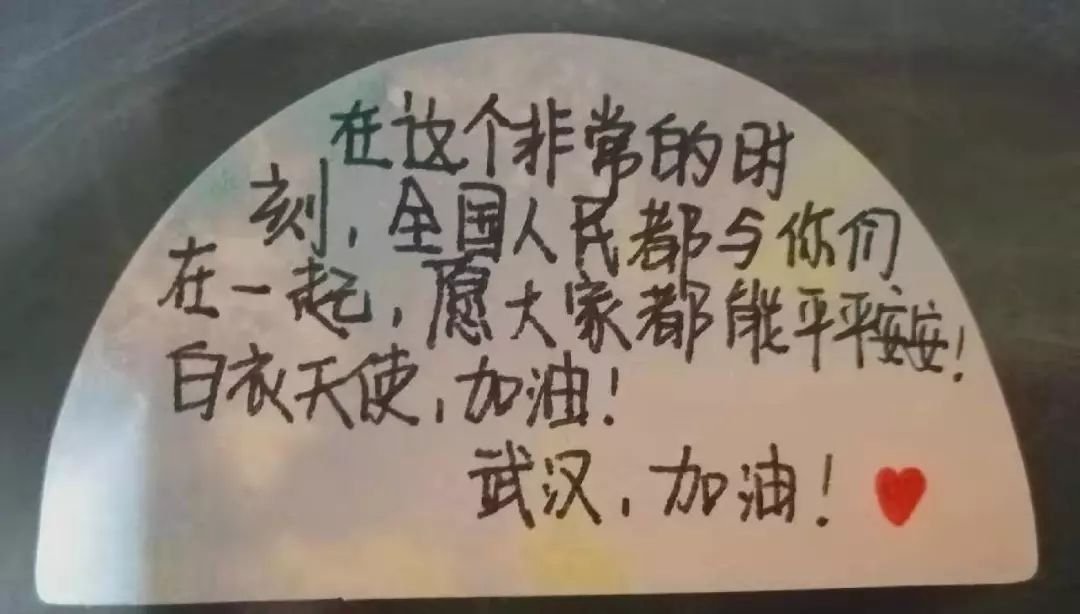 在这个非常的时
刻，全国人民都与你们
在一起，愿大家都能平平安安！
白衣天使，加油！
武汉，加油！